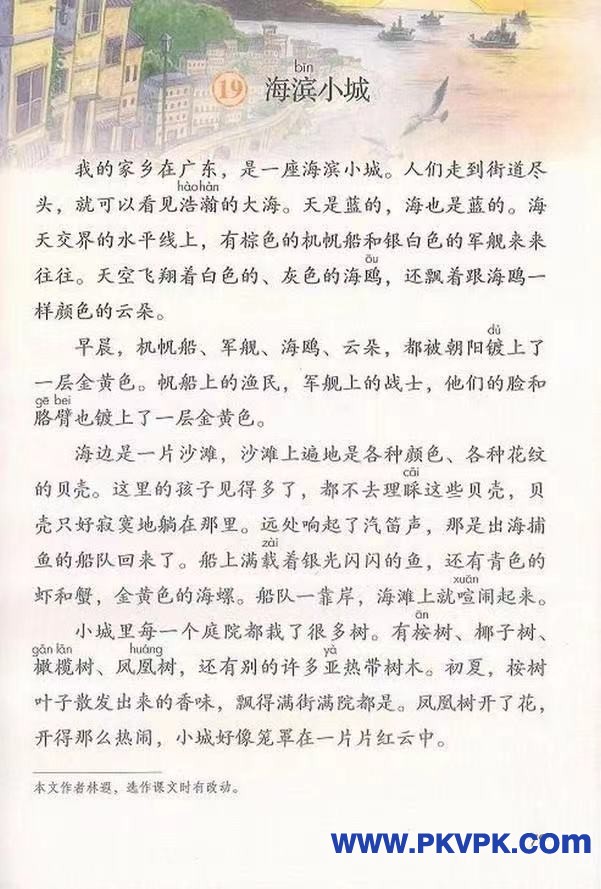 bīn
19 海滨小城
我的家乡在广东，是一座海滨小城。人们走到街道尽
hào hàn
头，就可以看见浩瀚的大海。天是蓝的，海也是蓝的。海
天交界的水平线上，有棕色的机帆船和银白色的军舰来来
ōu
往往。天空飞翔着白色的、灰色的海鸥，还飘着跟海鸥一
样颜色的云朵。
dù
早晨，机帆船、军舰、海鸥、云朵，都被朝阳镀上了
一层金黄色。帆船上的渔民，军舰上的战士，他们的脸和
gē bei
胳臂也镀上了一层金黄色。
海边是一片沙滩，沙滩上遍地是各种颜色、各种花纹
cǎi
的贝壳。这里的孩子见得多了，都不去理睬这些贝壳，贝
壳只好寂寞地躺在那里。远处响起了汽笛声，那是出海捕
zài
鱼的船队回来了。船上满载着银光闪闪的鱼，还有青色的
xuān
虾和蟹，金黄色的海螺。船队一靠岸，海滩上就喧闹起来。
ān
小城里每一个庭院都栽了很多树。有桉树、椰子树、
gǎn lǎn huáng yà
橄榄树、凤凰树，还有别的许多亚热带树木。初夏，桉树
叶子散发出来的香味，飘得满街满院都是。凤凰树开了花，
开得那么热闹，小城好像笼罩在一片片红云中。
本文作者林遐，选作课文时有改动。
WWW.PKVPK.COM